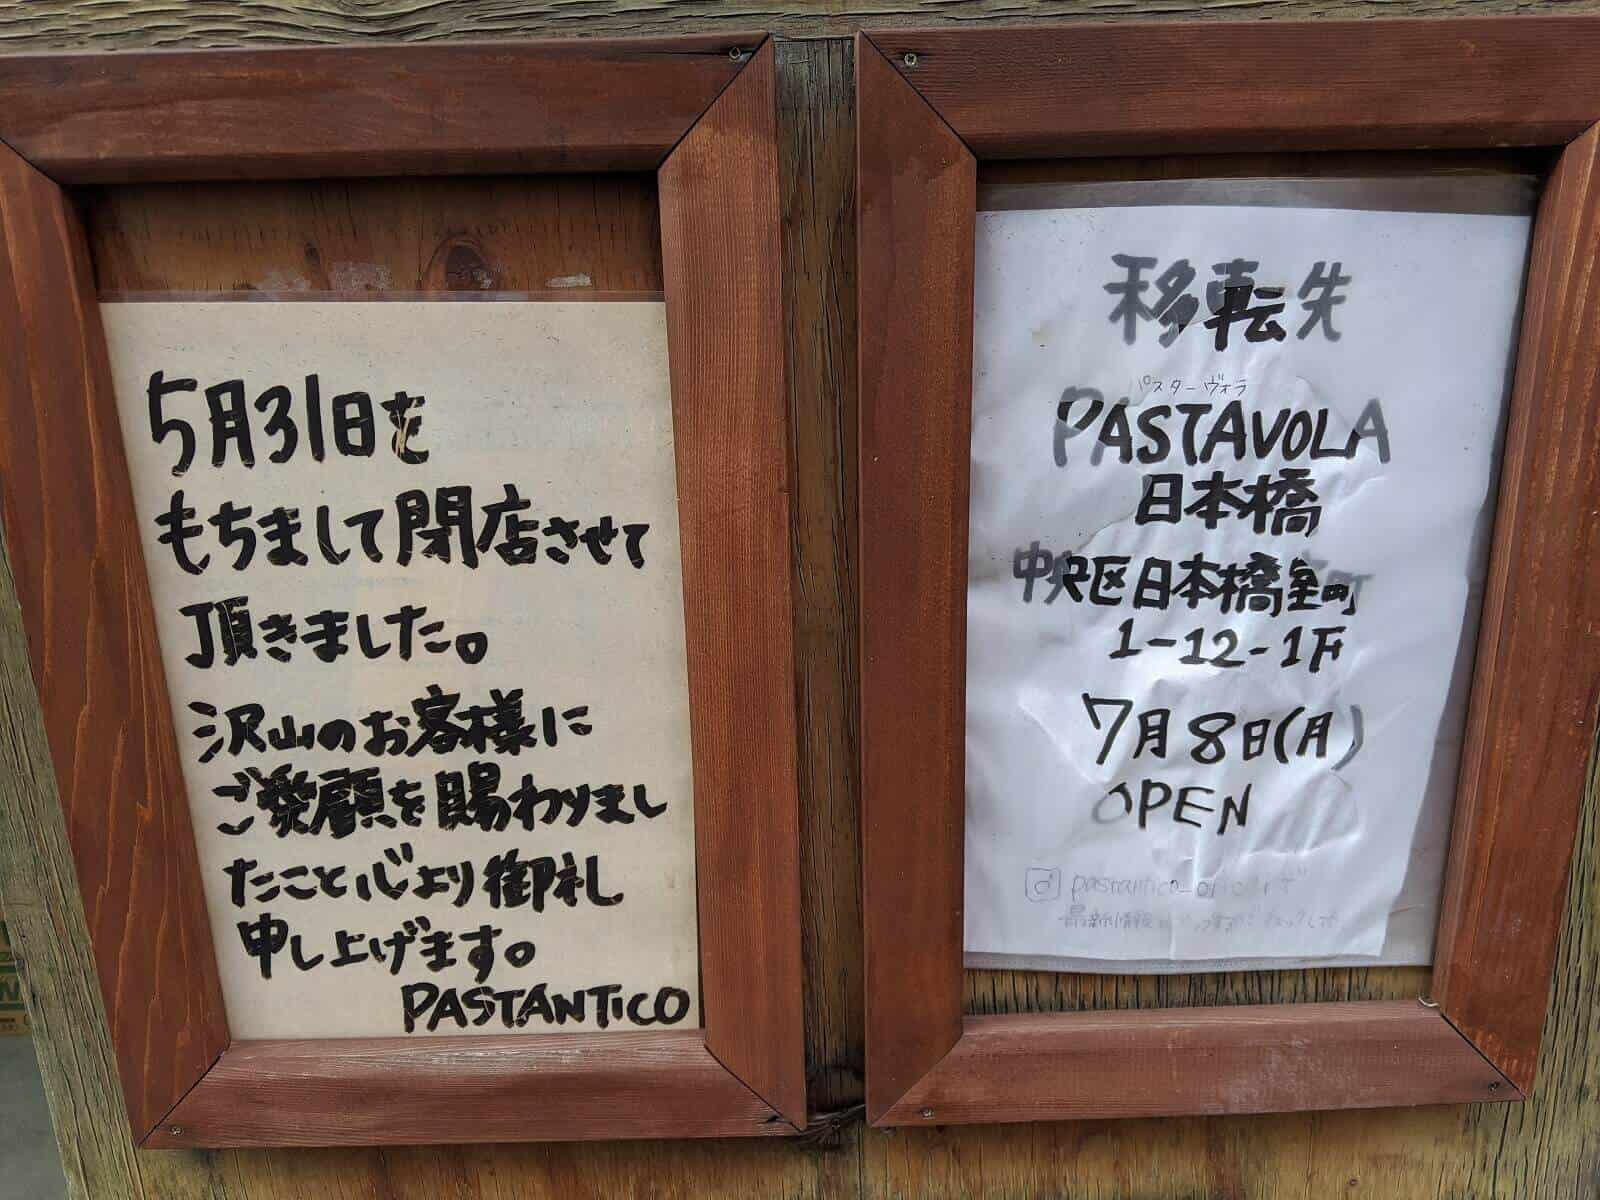 5月31日を
もちまして閉店させて
頂きました。
沢山のお客様に
ご愛顧を賜わりまし
たこと心より御礼
申し上げます。
PASTANTICO
移転先
パスターヴォラ
PASTAVOLA
日本橋
中央区日本橋室町
1-12-1F
7月8日(月)
OPEN
pastantico_
最新情報